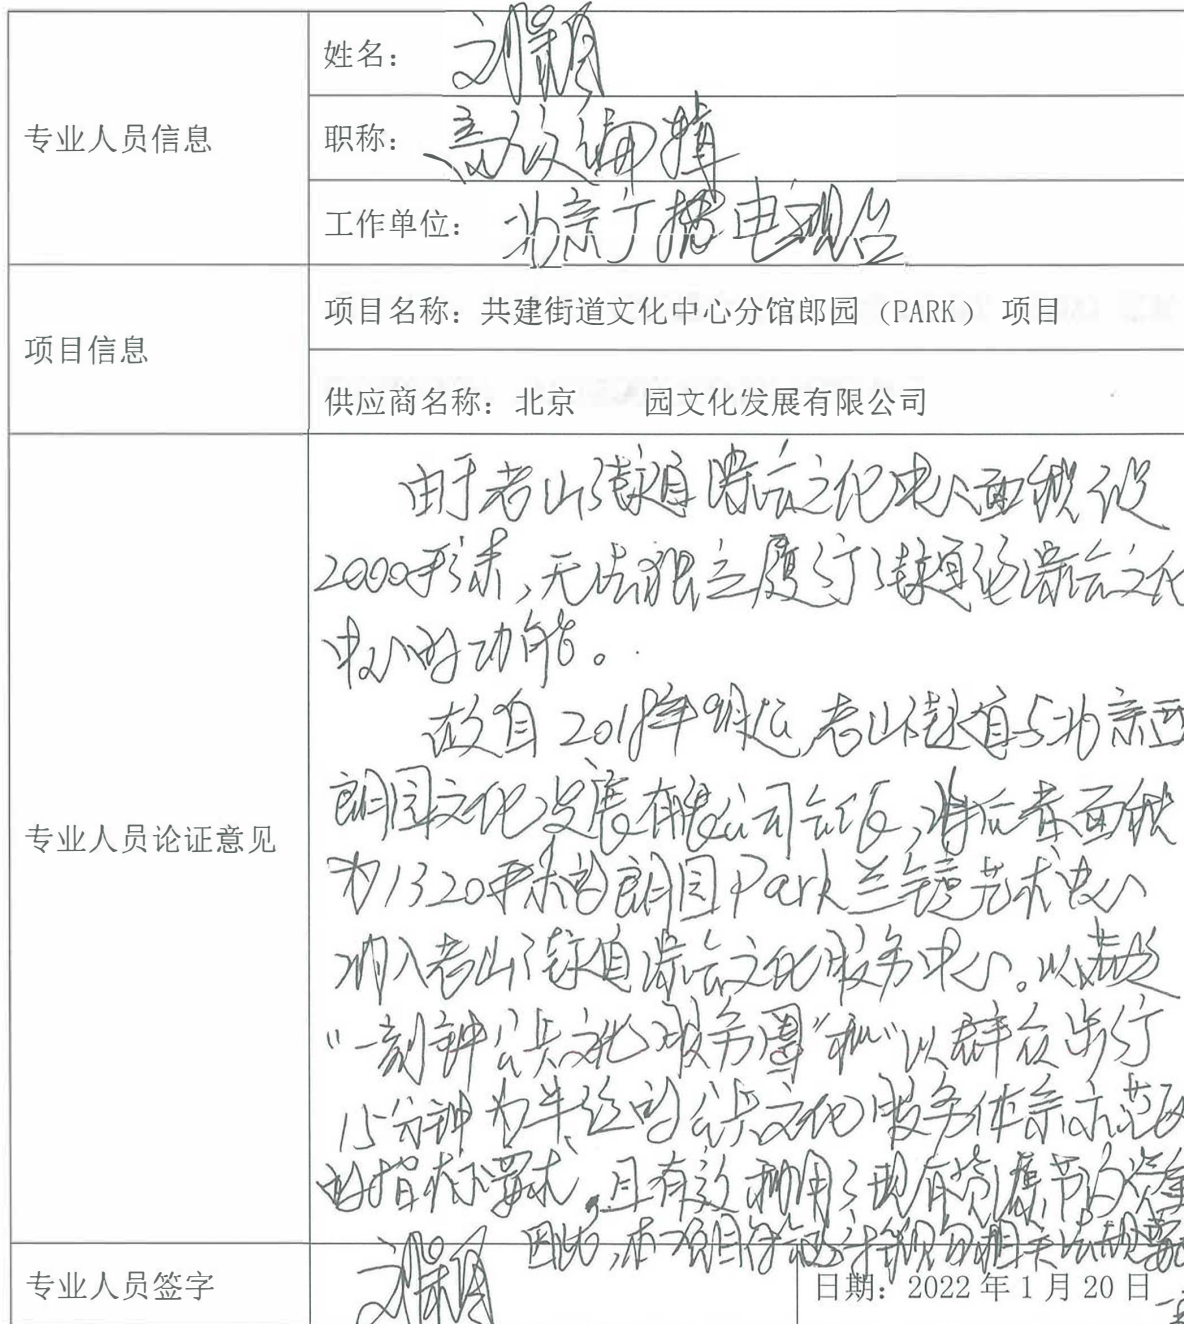 姓名：刘颖
专业人员信息
职称：高级编辑
工作单位：北京广播电视台
项目信息
项目名称：共建街道文化中心分馆郎园（PARK）项目
供应商名称：北京 园文化发展有限公司
专业人员论证意见
由于老山街道综合文化中心面积仅
2000平米，无法独立履行街道级综合文化
中心的功能。
故自2018年 起，老山街道与北京西
郎园文化发展有限公司合作，将后者面积
为1320平米的郎园Park兰境艺术中心
纳入老山街道综合文化服务中心。以满足
“一刻钟公共文化服务圈”和“以群众步行
15分钟为半径的公共文化服务体系示范区
的指标要求，且有效利用了现有资源节约资金
因此，本项目符合 相关法规要
专业人员签字
刘颖
日期：2022年1月20日